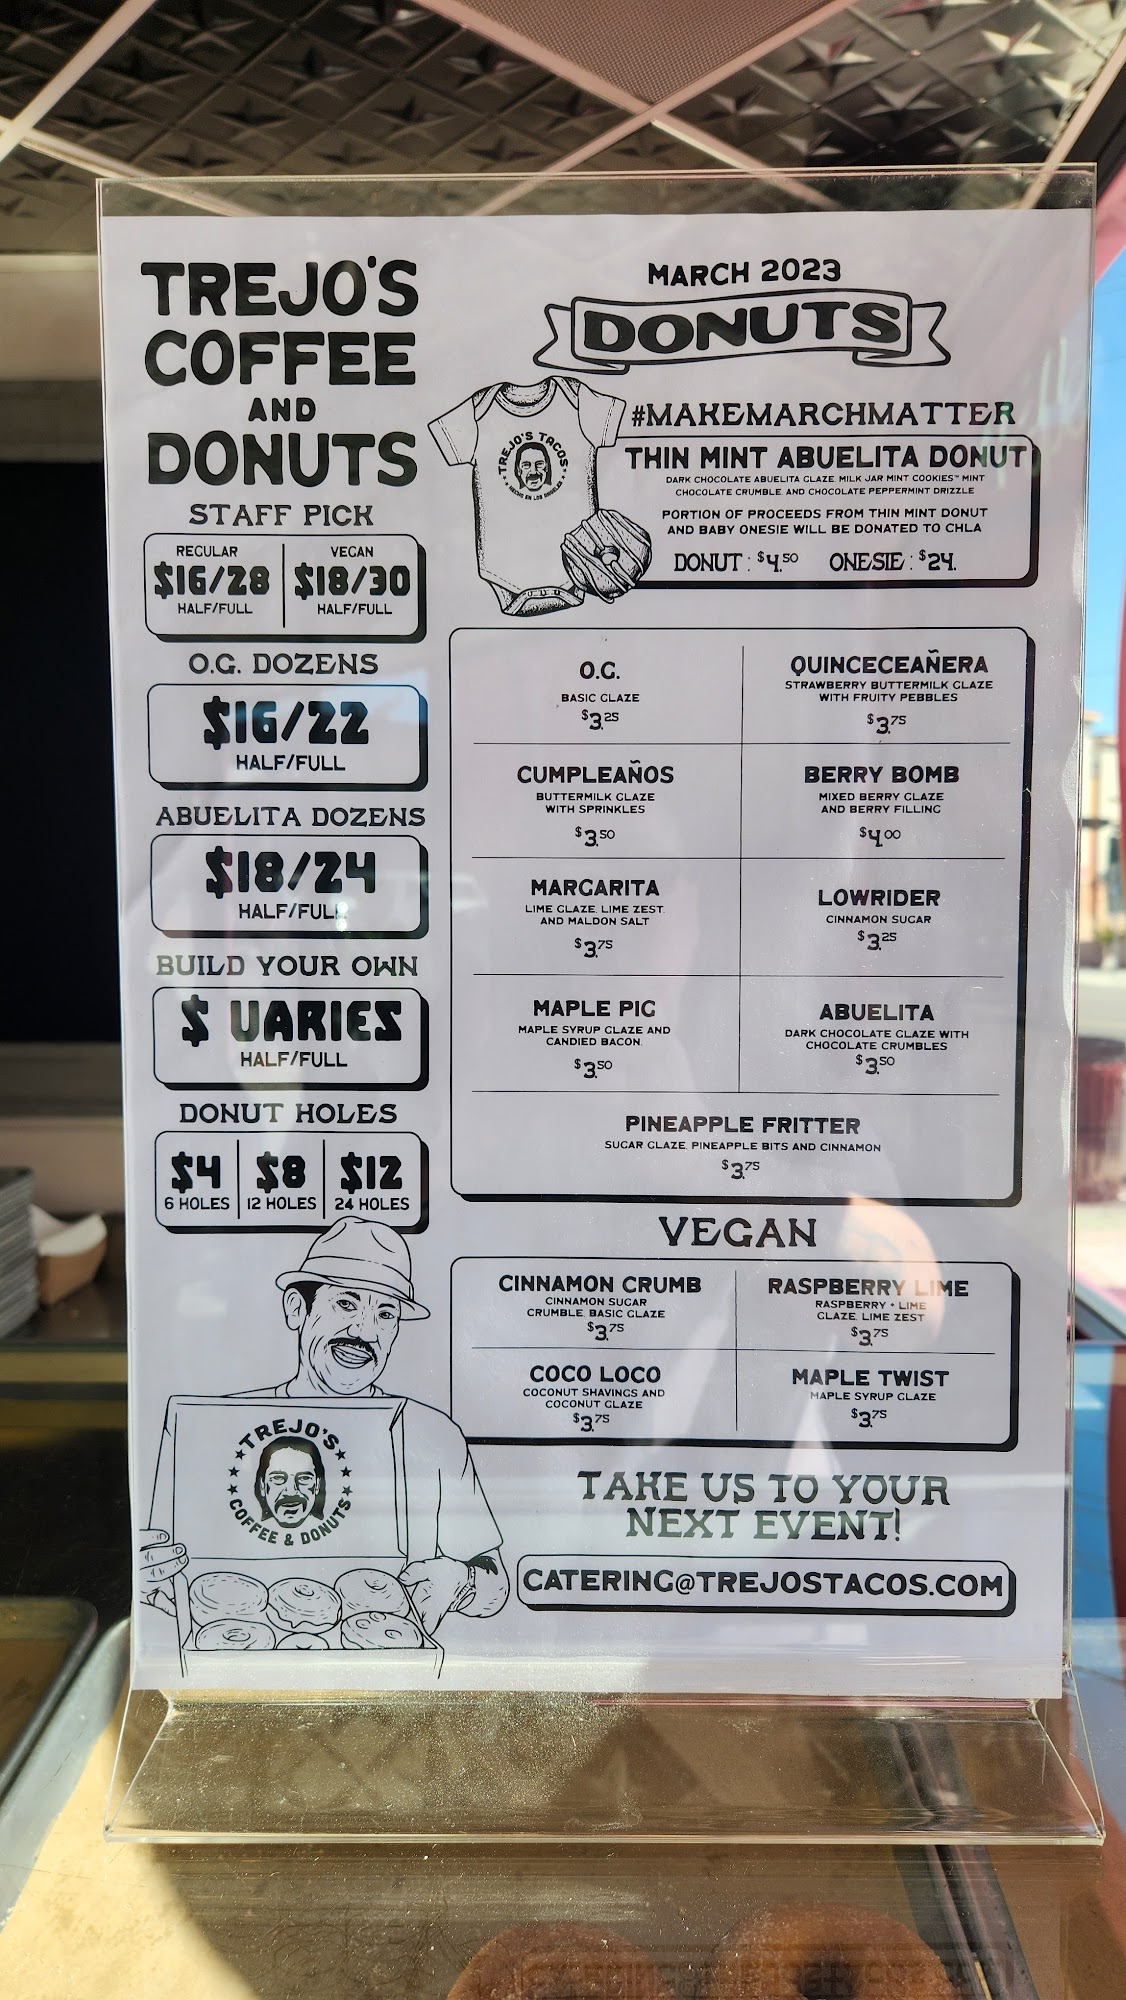 TREJO'S
COFFEE
AND
DONUTS
STAFF PICK
REGULAR
$16/28
HALF/FULL
VEGAN
$18/30
HALF/FULL
O.G. DOZENS
$16/22
HALF/FULL
ABUELITA DOZENS
$18/24
HALF/FULL
BUILD YOUR OWN
$ VARIES
HALF/FULL
DONUT HOLES
$4
6 HOLES
$8
12 HOLES
$12
24 HOLES
TREJO'S
COFFEE & DONUTS
MARCH 2023
DONUTS
TREJO'S TACOS
HECHO EN LOS ANGELES
#MAKEMARCHMATTER
THIN MINT ABUELITA DONUT
DARK CHOCOLATE ABUELITA GLAZE, MILK JAR MINT COOKIES™ MINT
CHOCOLATE CRUMBLE, AND CHOCOLATE PEPPERMINT DRIZZLE
PORTION OF PROCEEDS FROM THIN MINT DONUT
AND BABY ONESIE WILL BE DONATED TO CHLA
DONUT : $4.50 ONESIE : $24.
O.G.
BASIC GLAZE
$3.25
QUINCECEAÑERA
STRAWBERRY BUTTERMILK GLAZE
WITH FRUITY PEBBLES
$3.75
CUMPLEAÑOS
BUTTERMILK GLAZE
WITH SPRINKLES
$3.50
BERRY BOMB
MIXED BERRY GLAZE
AND BERRY FILLING
$4.00
MARGARITA
LIME GLAZE, LIME ZEST,
AND MALDON SALT
$3.75
LOWRIDER
CINNAMON SUGAR
$3.25
MAPLE PIG
MAPLE SYRUP GLAZE AND
CANDIED BACON.
$3.50
ABUELITA
DARK CHOCOLATE GLAZE WITH
CHOCOLATE CRUMBLES
$3.50
PINEAPPLE FRITTER
SUGAR GLAZE, PINEAPPLE BITS AND CINNAMON
$3.75
VEGAN
CINNAMON CRUMB
CINNAMON SUGAR
CRUMBLE, BASIC GLAZE
$3.75
RASPBERRY LIME
RASPBERRY + LIME
GLAZE, LIME ZEST
$3.75
COCO LOCO
COCONUT SHAVINGS AND
COCONUT GLAZE
$3.75
MAPLE TWIST
MAPLE SYRUP GLAZE
$3.75
TAKE US TO YOUR
NEXT EVENT!
CATERING@TREJOSTACOS.COM